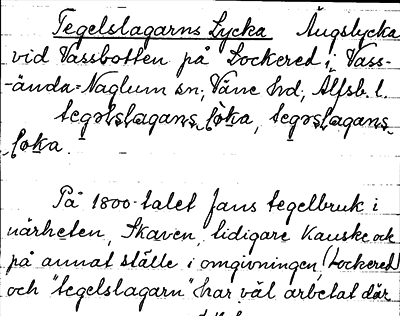 Tegelslagarns Lycka Ängslycka
vid Vassbotten på Lockered i Vass-
-ända-Naglum sn; Väne hd, Älfsb. l.
På 1800-talet fans tegelbruk i
närheten, Skaven, tidigare kanske ock
på annat ställe i omgivningen, (Lockered)
och "tegelslagarn" har väl arbetat där